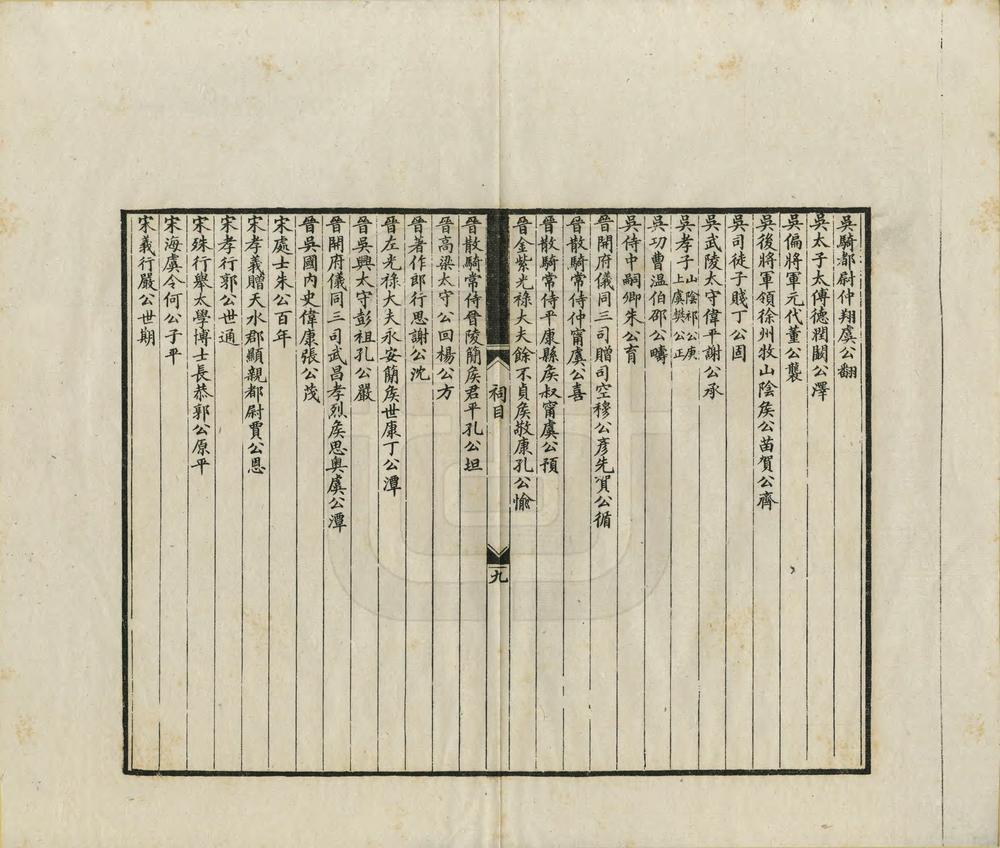 吳騎都尉仲翔虞公翻
吳太子太傅德潤闞公澤
吳偏將軍元代董公襲
吳後將軍領徐州牧山陰矦公苗賀公齊
吳司徒子賤丁公固
吳武陵太守偉平謝公承
吳孝子山陰祁公庚上虞樊公正
吳功曹溫伯邵公疇
吳侍中嗣卿朱公育
晉開府儀同三司贈司空穆公彥先賀公循
晉散騎常侍仲甯虞公喜
晉散騎常侍平康縣矦叔甯虞公預
晉金紫光祿大夫餘不貞矦敬康孔公愉
祠目
九
晉散騎常侍晉陵簡矦君平孔公坦
晉高梁太守公回楊公方
晉著作郎行思謝公沈
晉左光祿大夫永安簡矦世康丁公潭
晉吳興太守彭祖孔公嚴
晉開府儀同三司武昌孝烈矦思奧虞公潭
晉吳國內史偉康張公茂
宋處士朱公百年
宋孝義贈天水郡顯親都尉賈公恩
宋孝行郭公世通
宋殊行舉太學博士長恭郭公原平
宋海虞令何公子平
宋義行嚴公世期